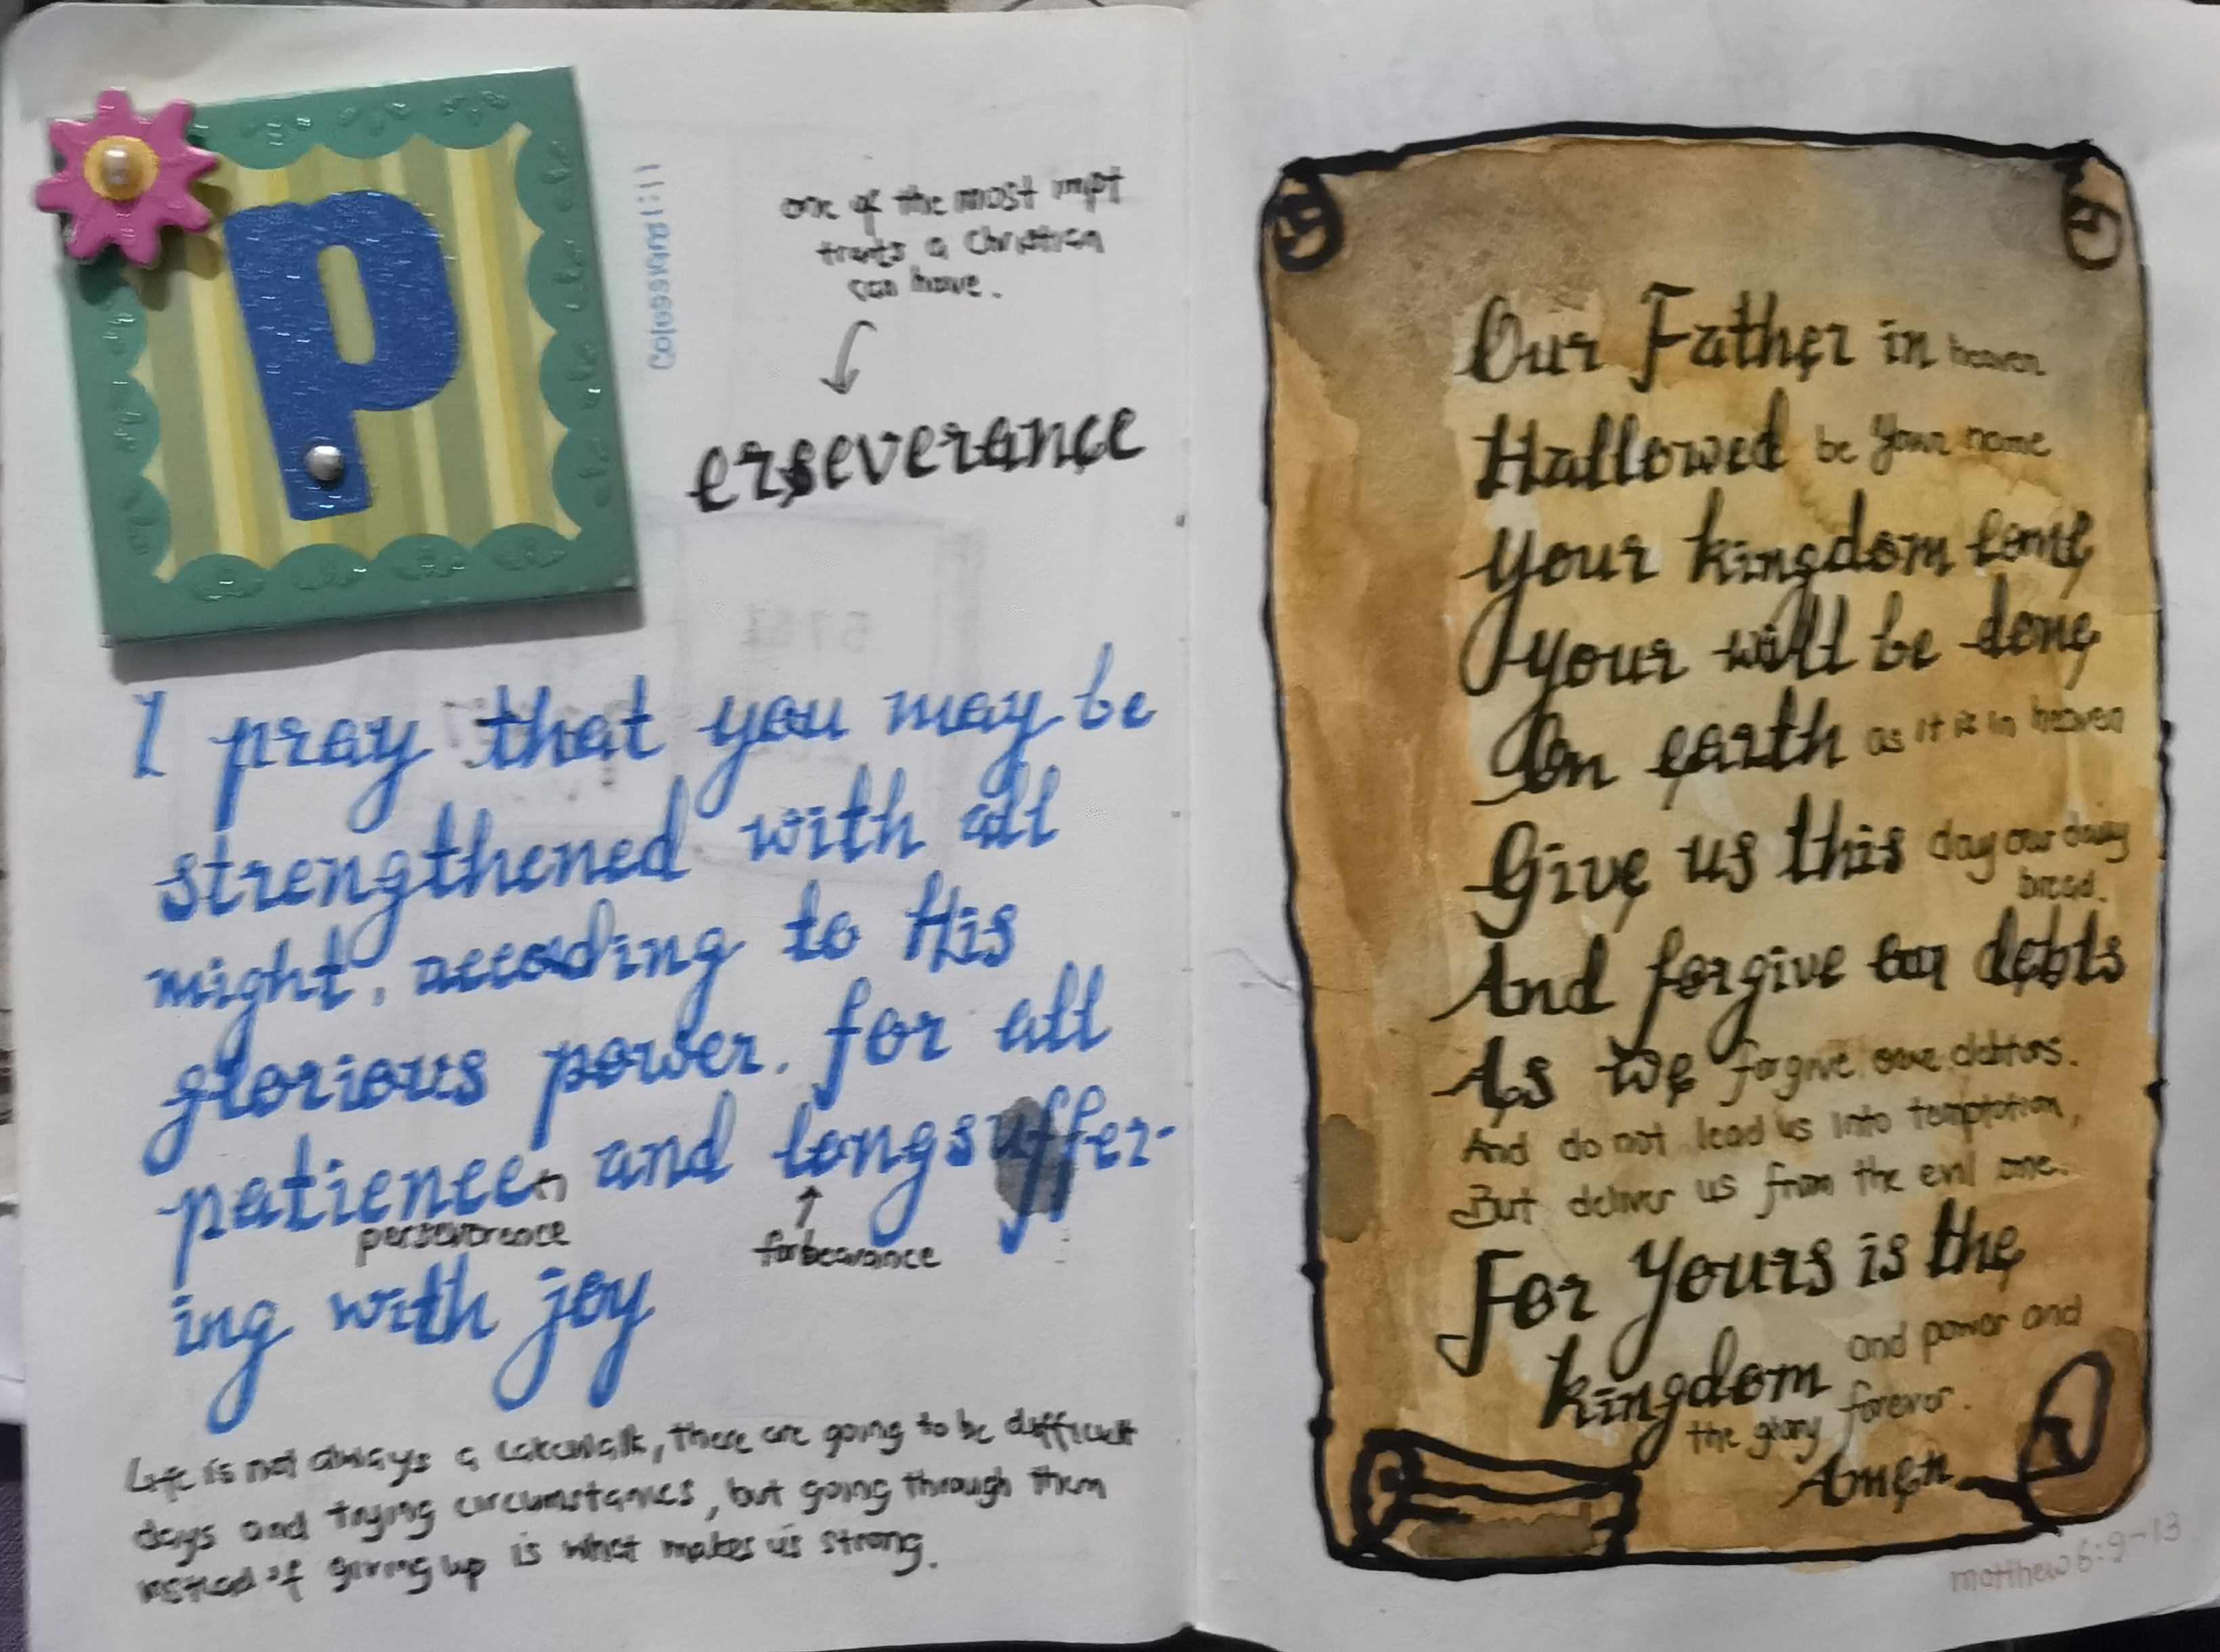 P
Colossians 1:11
one of the most impt
traits a Christian
can have.
erseverance
I pray that you may be
strengthened with all
might, according to His
glorious power. for all
patience and longsuffer-
perseverence
forbearance
ing with joy
Life is not always a cakewalk, there are going to be difficult
days and trying circumstances, but going through them
instead of giving up is what makes us strong.
Our Father in heaven
Hallowed be Your name
Your kingdom come
Your will be done
On earth as it is in heaven
Give us this day our daily
bread.
And forgive our debts
As we forgive our debtors.
And do not lead us into temptation,
But deliver us from the evil one.
For Yours is the
kingdom and power and
the glory forever.
Amen
matthew 6:9-13